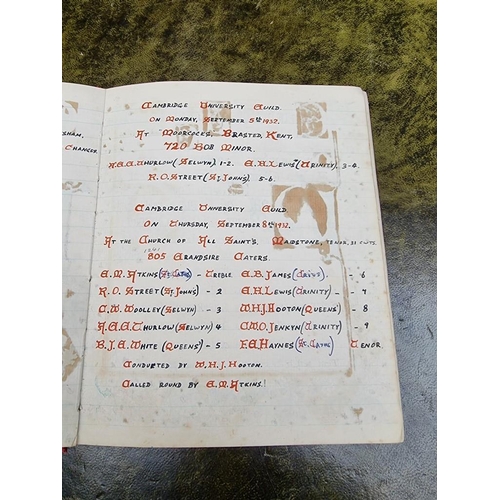 SHAM,
CHANGES.
CAMBRIDGE UNIVERSITY GUILD.
ON MONDAY, SEPTEMBER 5TH 1932.
AT MOORCOCKS, BRASTED, KENT,
720 BOB MINOR.
A.G.G. THURLOW (SELWYN). 1-2. E.H. LEWIS (TRINITY). 3-4.
R.O. STREET (ST. JOHN'S). 5-6.
CAMBRIDGE UNIVERSITY GUILD.
ON THURSDAY, SEPTEMBER 8TH 1932.
AT THE CHURCH OF ALL SAINT'S, MAIDSTONE, TENOR, 31 CWTS.
1241
805 GRANDSIRE CATERS.
E.M. ATKINS (ST. CATHS) - TREBLE E.B. JAMES (CAIUS) - 6
R.O. STREET (ST. JOHNS) - 2 E.H. LEWIS (TRINITY) - 7
C.W. WOOLLEY (SELWYN) - 3 W.H.J. HOOTON (QUEENS') - 8
A.G.G. THURLOW (SELWYN) 4 C.M.O. JENKYN (TRINITY) - 9
B.J.E. WHITE (QUEENS' - 5 F.E. HAYNES (ST. CATHS) TENOR
CONDUCTED BY W.H.J. HOOTON.
CALLED ROUND BY E.M. ATKINS!